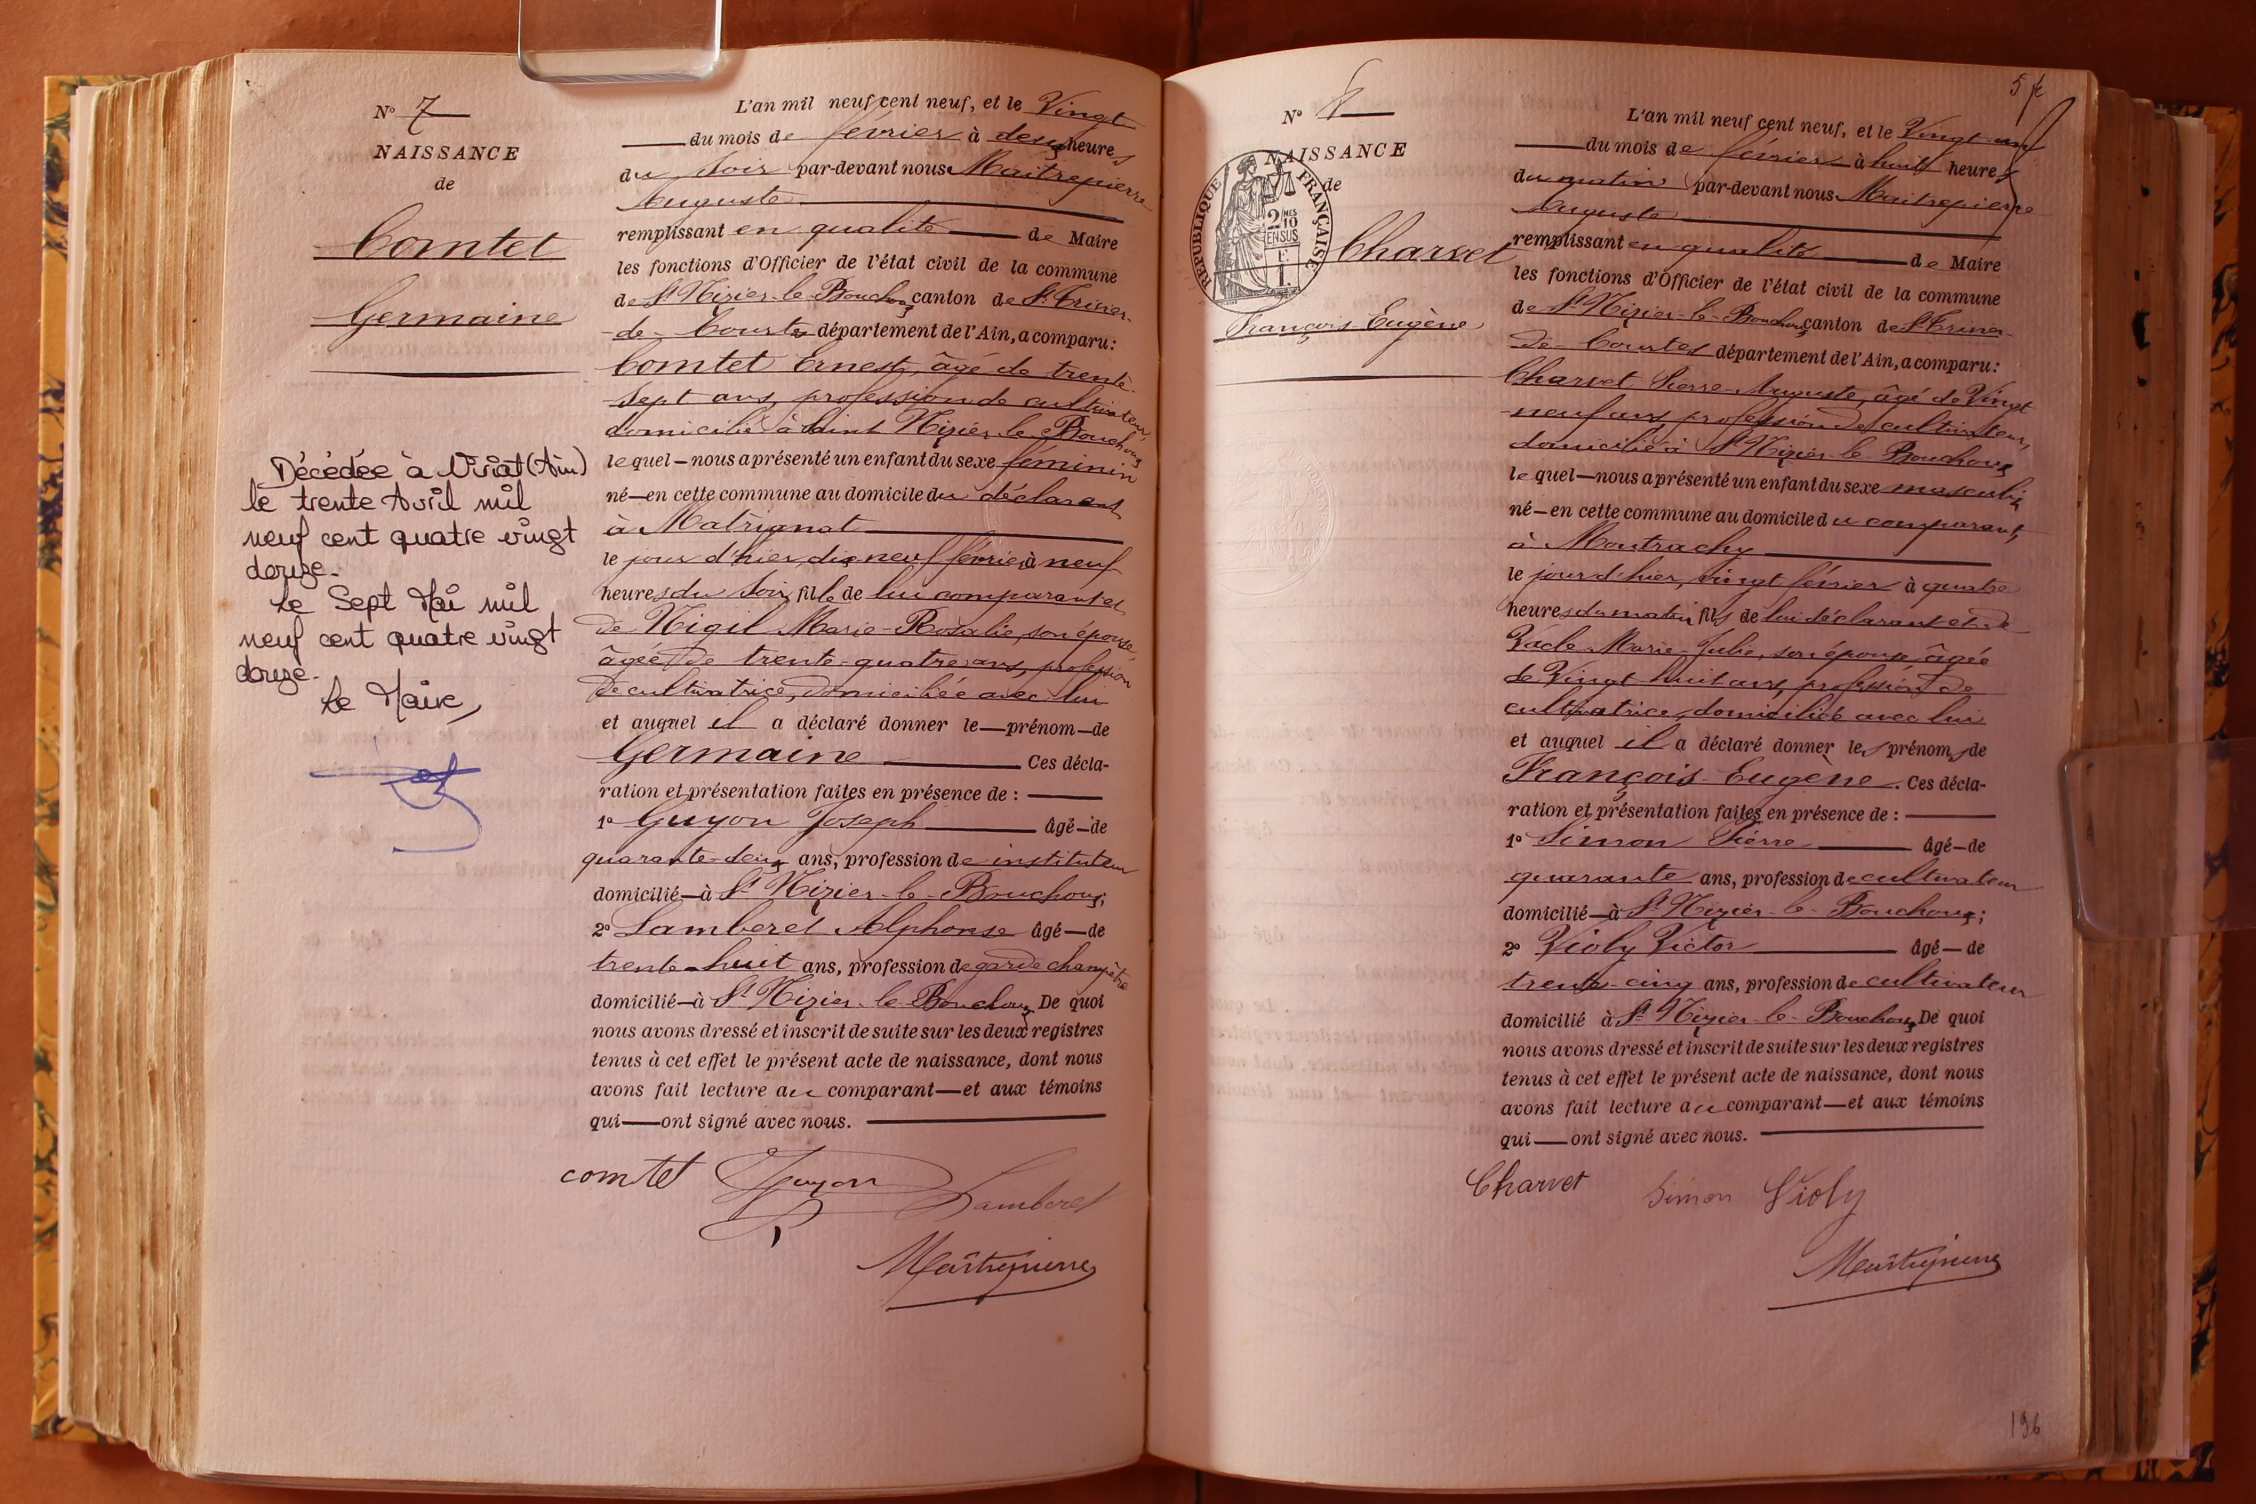 N° 7
NAISSANCE
de
Comtet
Germaine
Décédée à Viriat (Ain)
le trente Avril mil
neuf cent quatre vingt
douze.
Le Sept Mai mil
neuf cent quatre vingt
douze.
Le Maire,
L'an mil neuf cent neuf, et le Vingt
du mois de février à deux heures
du soir par-devant nous Maitrepierre
Auguste
remplissant en qualité de Maire
les fonctions d'Officier de l'état civil de la commune
de St Nizier-le-Bouchoux canton de St Trivier-
de-Courtes département de l'Ain, a comparu :
Comtet Ernest, âgé de trente-
sept ans, profession de cultivateur,
domicilié à Saint Nizier-le-Bouchoux
lequel nous a présenté un enfant du sexe féminin
né en cette commune au domicile du déclarant
à Matrignat
le jour d'hier, dix neuf février à neuf
heures du soir, fille de lui comparant et
de Nigil Marie-Rosalie, son épouse,
âgée de trente-quatre ans, profession
de cultivatrice, domiciliée avec lui
et auquel il a déclaré donner le prénom de
Germaine Ces décla-
ration et présentation faites en présence de :
1° Guyon Joseph âgé de
quarante-deux ans, profession de instituteur
domicilié à St Nizier-le-Bouchoux;
2° Lamberet Alphonse âgé de
trente-huit ans, profession de garde champêtre
domicilié à St Nizier-le-Bouchoux De quoi
nous avons dressé et inscrit de suite sur les deux registres
tenus à cet effet le présent acte de naissance, dont nous
avons fait lecture au comparant et aux témoins
qui ont signé avec nous.
comtet Guyon Lamberet
Maitrepierre
5
N° 8
NAISSANCE
de
RÉPUBLIQUE FRANÇAISE
2 MES
10
EN SUS
Charvet
François-Eugène
L'an mil neuf cent neuf, et le Vingt-un
du mois de février à huit heures
du matin par-devant nous Maitrepierre
Auguste
remplissant en qualité de Maire
les fonctions d'Officier de l'état civil de la commune
de St Nizier-le-Bouchoux canton de St Trivier-
de-Courtes département de l'Ain, a comparu :
Charvet Pierre-Auguste, âgé de Vingt
neuf ans, profession de cultivateur,
domicilié à St Nizier-le-Bouchoux
lequel nous a présenté un enfant du sexe masculin
né en cette commune au domicile du comparant,
à Montrachy
le jour d'hier, vingt février à quatre
heures du matin, fils de lui déclarant et de
Marie-Julie, son épouse, âgée
de Vingt-huit ans, profession de
cultivatrice, domiciliée avec lui
et auquel il a déclaré donner les prénoms de
François-Eugène. Ces décla-
ration et présentation faites en présence de :
1° Simon Pierre âgé de
quarante ans, profession de cultivateur
domicilié à St Nizier-le-Bouchoux;
2° Violy Victor âgé de
trente-cinq ans, profession de cultivateur
domicilié à St Nizier-le-Bouchoux De quoi
nous avons dressé et inscrit de suite sur les deux registres
tenus à cet effet le présent acte de naissance, dont nous
avons fait lecture au comparant et aux témoins
qui ont signé avec nous.
Charvet Simon Violy
Maitrepierre
196